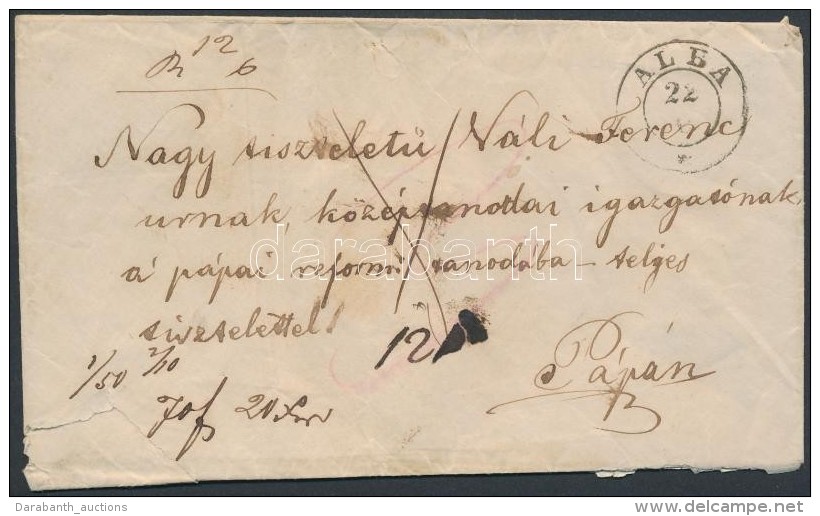 12
6
ALBA
22
Nagy tiszteletü Váli Ferenc
urnak, középtanodai igazgatónak,
a' pápai reform tanodába – teljes
tisztelettel!
12
Pápán
1/50 2/10
70f 20
darabanth
Darabanth_auctions
© www.delcampe.net